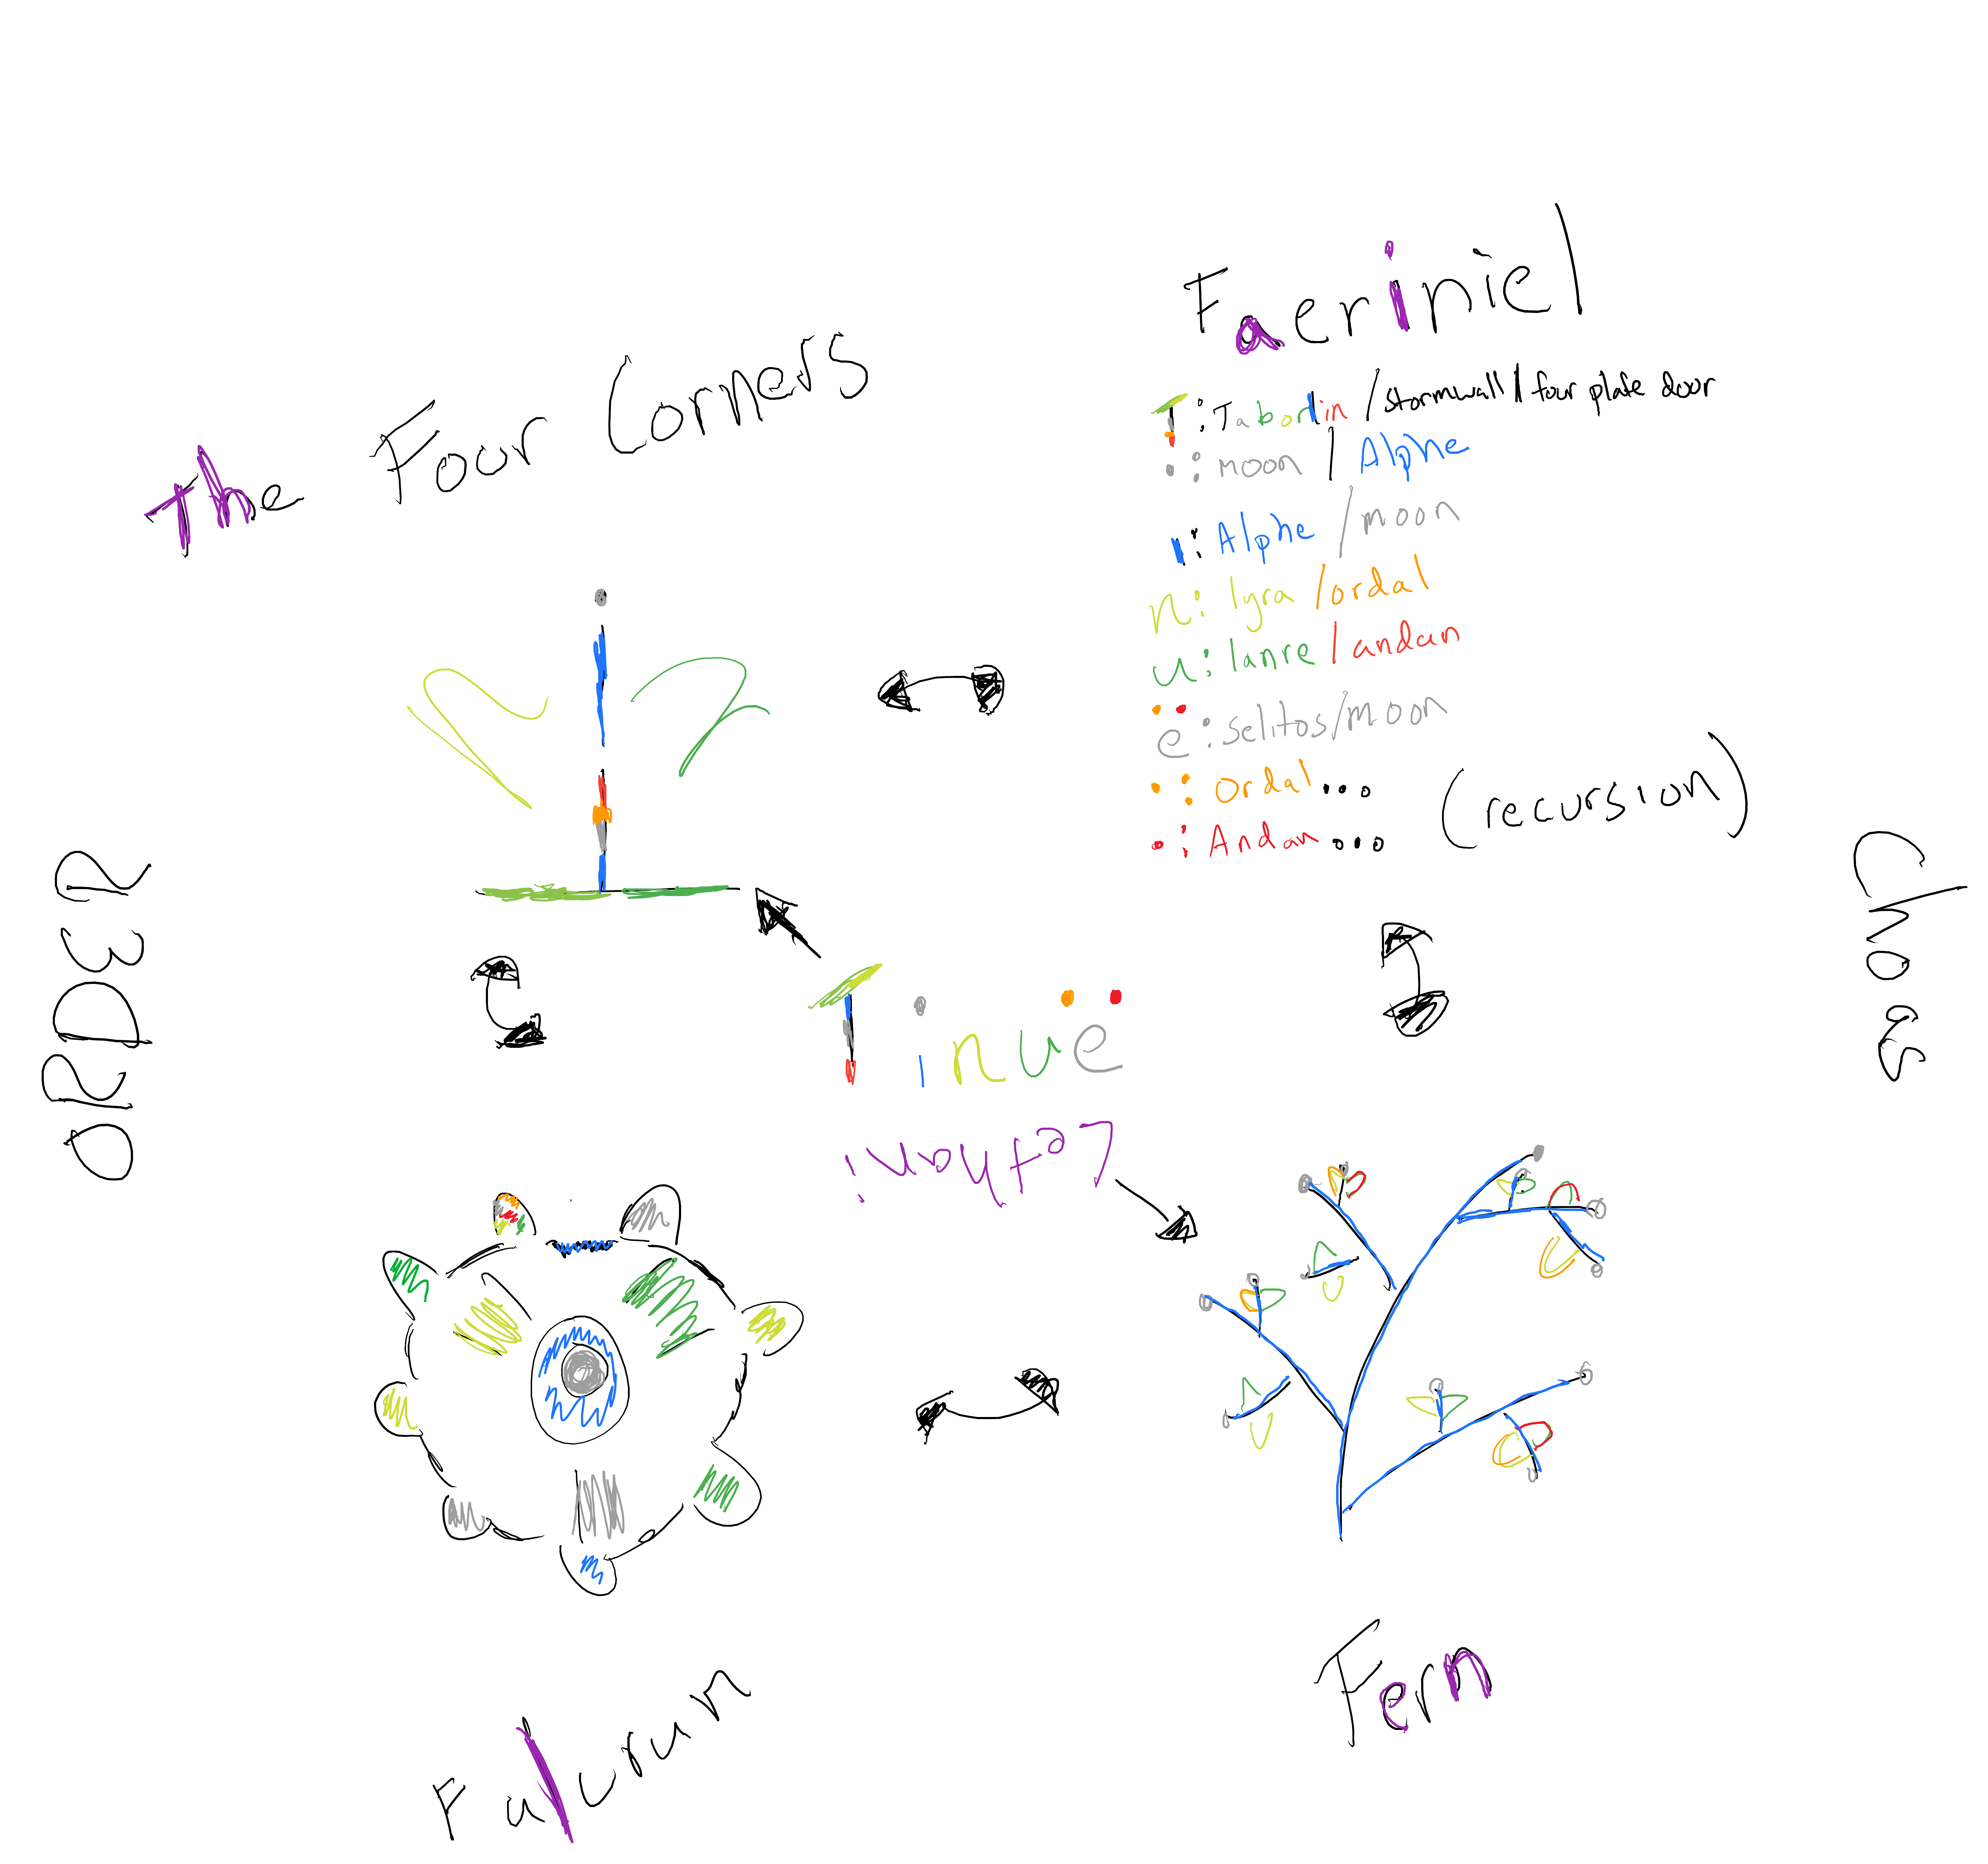 The Four Corners
Faeriniel
T: Taborlin / stormwall / four plate door
•: moon / Alphe
ı: Alphe / moon
n: lyra / ordal
u: lanre / andan
ë: selitos / moon
•: Ordal...
•: Andan...
(recursion)
ORDER
Chaos
Tinuë
Lethani
Fulcrum
Fern